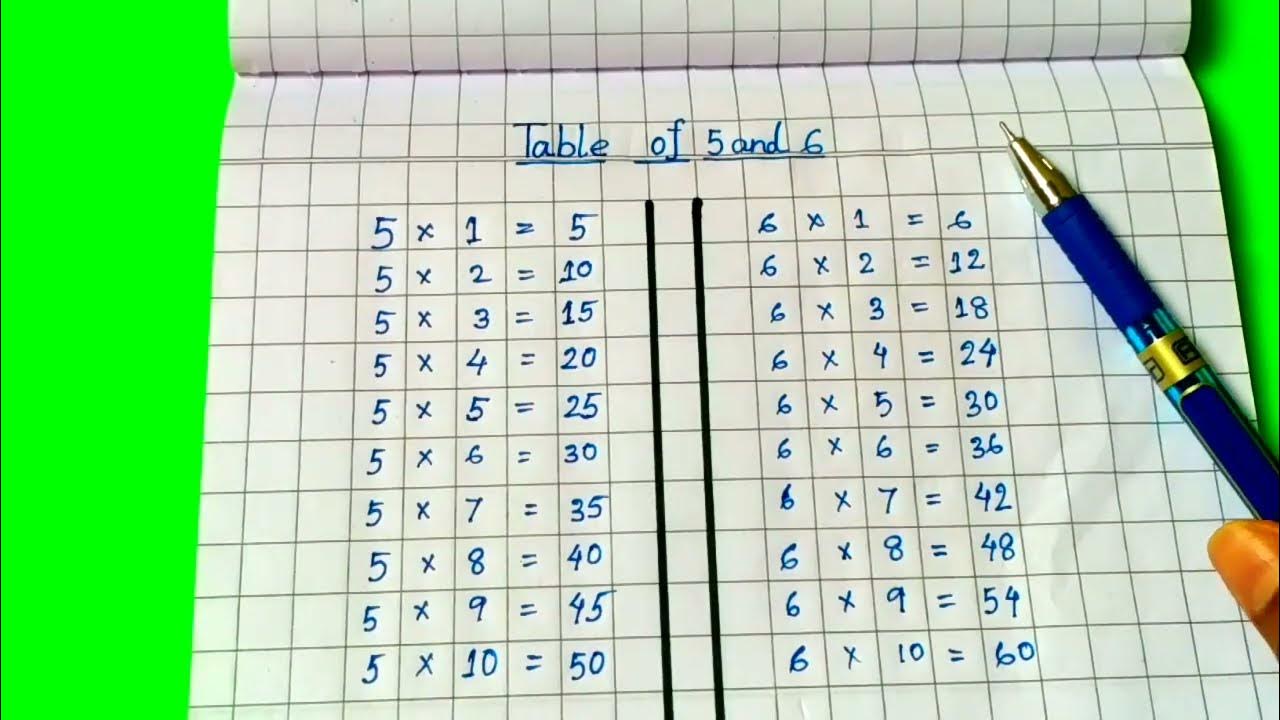 Table of 5 and 6
5 × 1 = 5
5 × 2 = 10
5 × 3 = 15
5 × 4 = 20
5 × 5 = 25
5 × 6 = 30
5 × 7 = 35
5 × 8 = 40
5 × 9 = 45
5 × 10 = 50
6 × 1 = 6
6 × 2 = 12
6 × 3 = 18
6 × 4 = 24
6 × 5 = 30
6 × 6 = 36
6 × 7 = 42
6 × 8 = 48
6 × 9 = 54
6 × 10 = 60